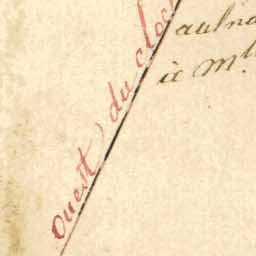 ouest du cloc
aulna
à Mlle